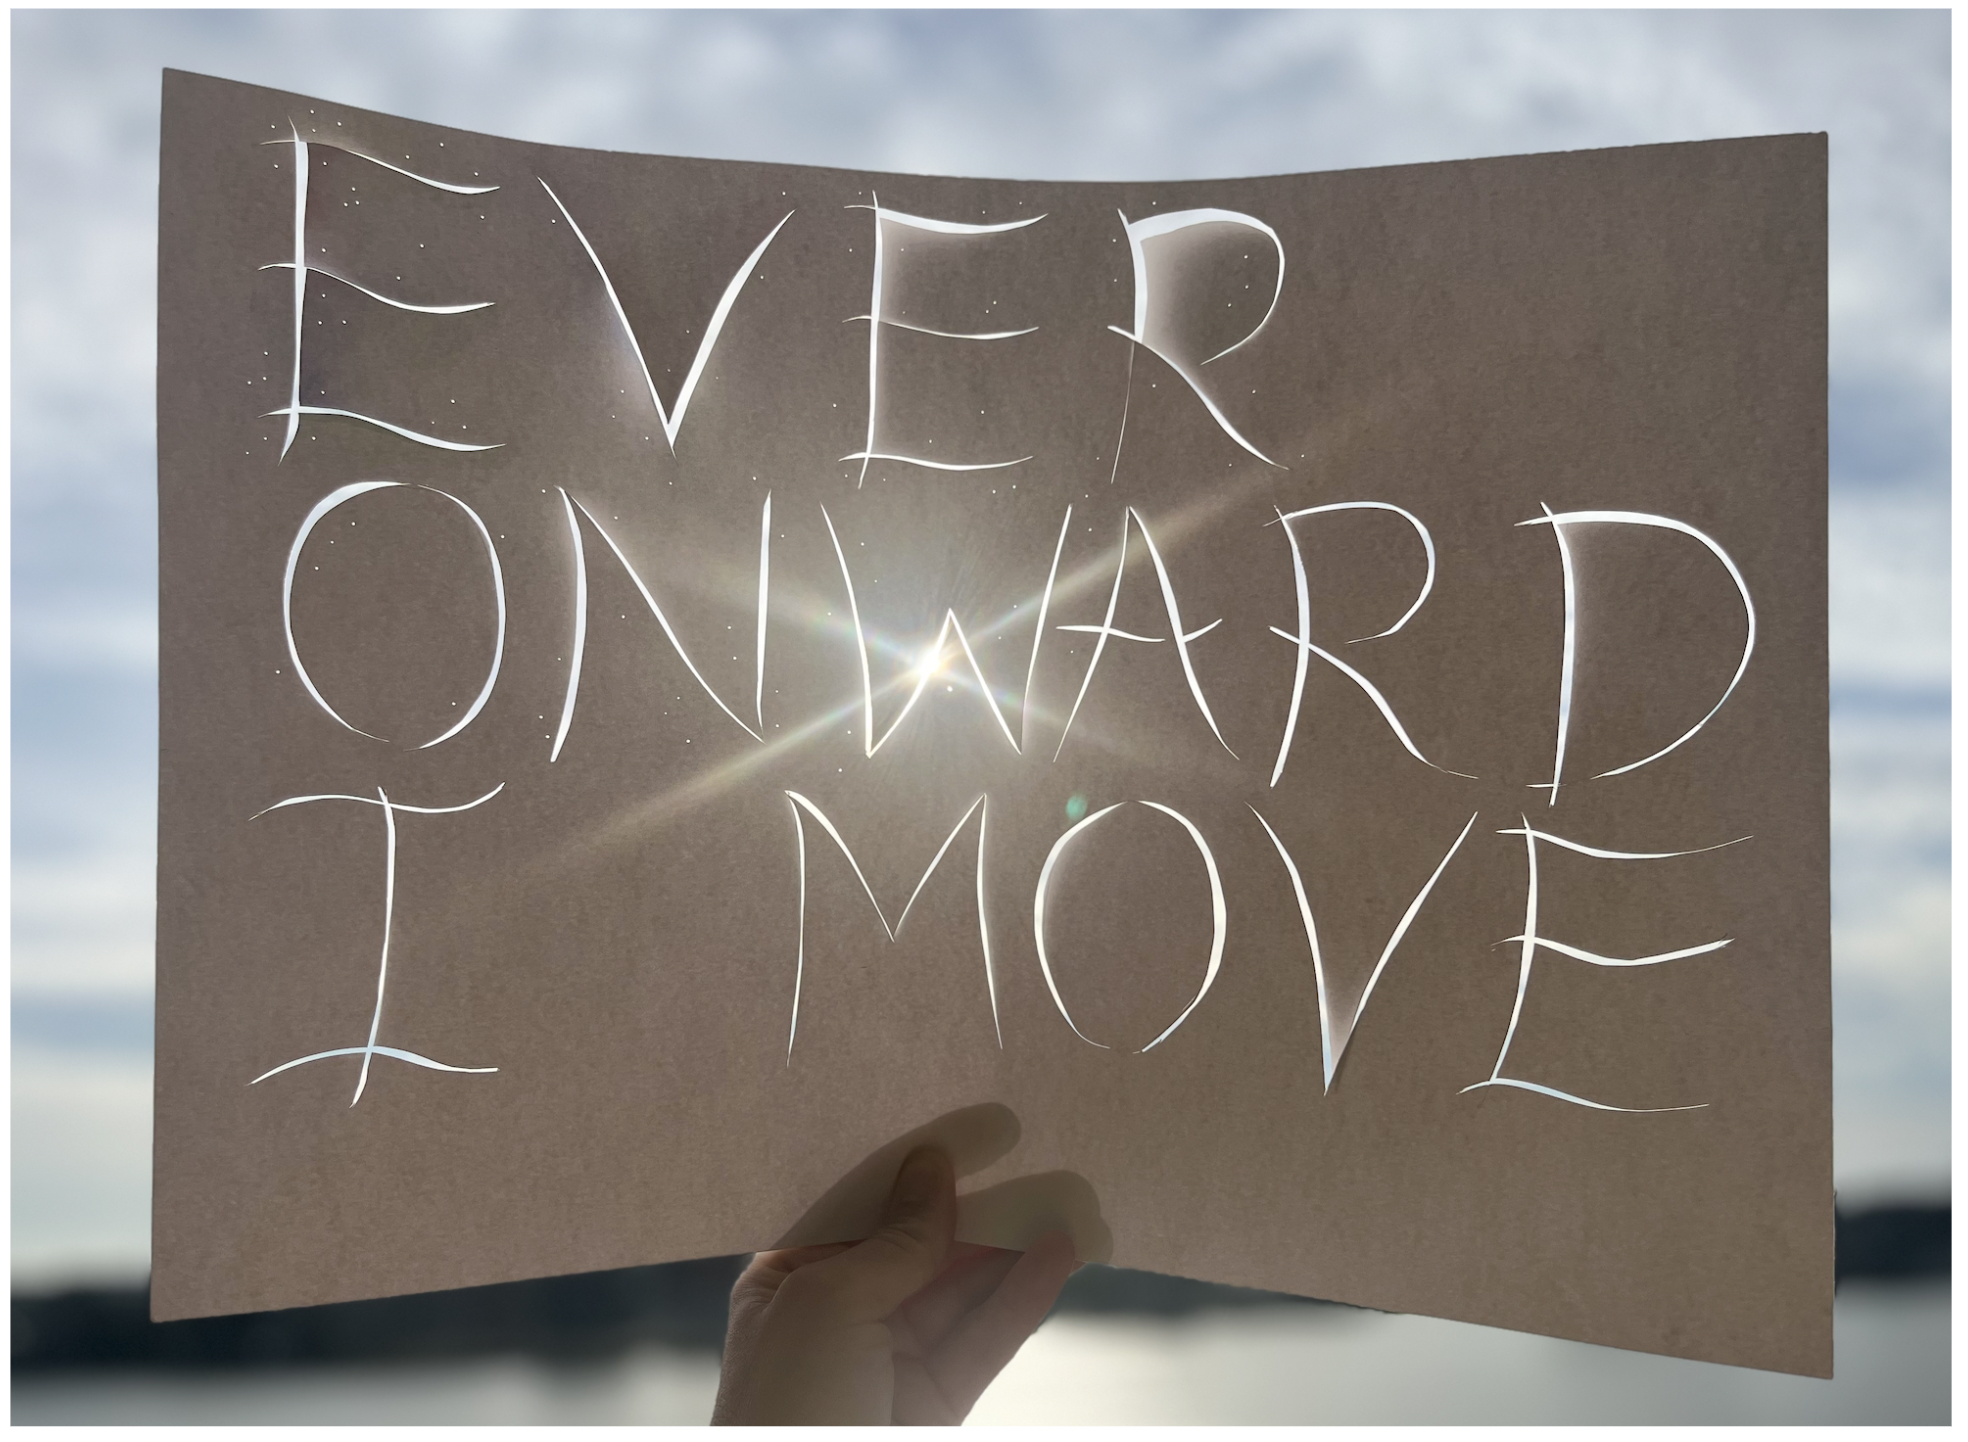 EVER
ONWARD
I MOVE